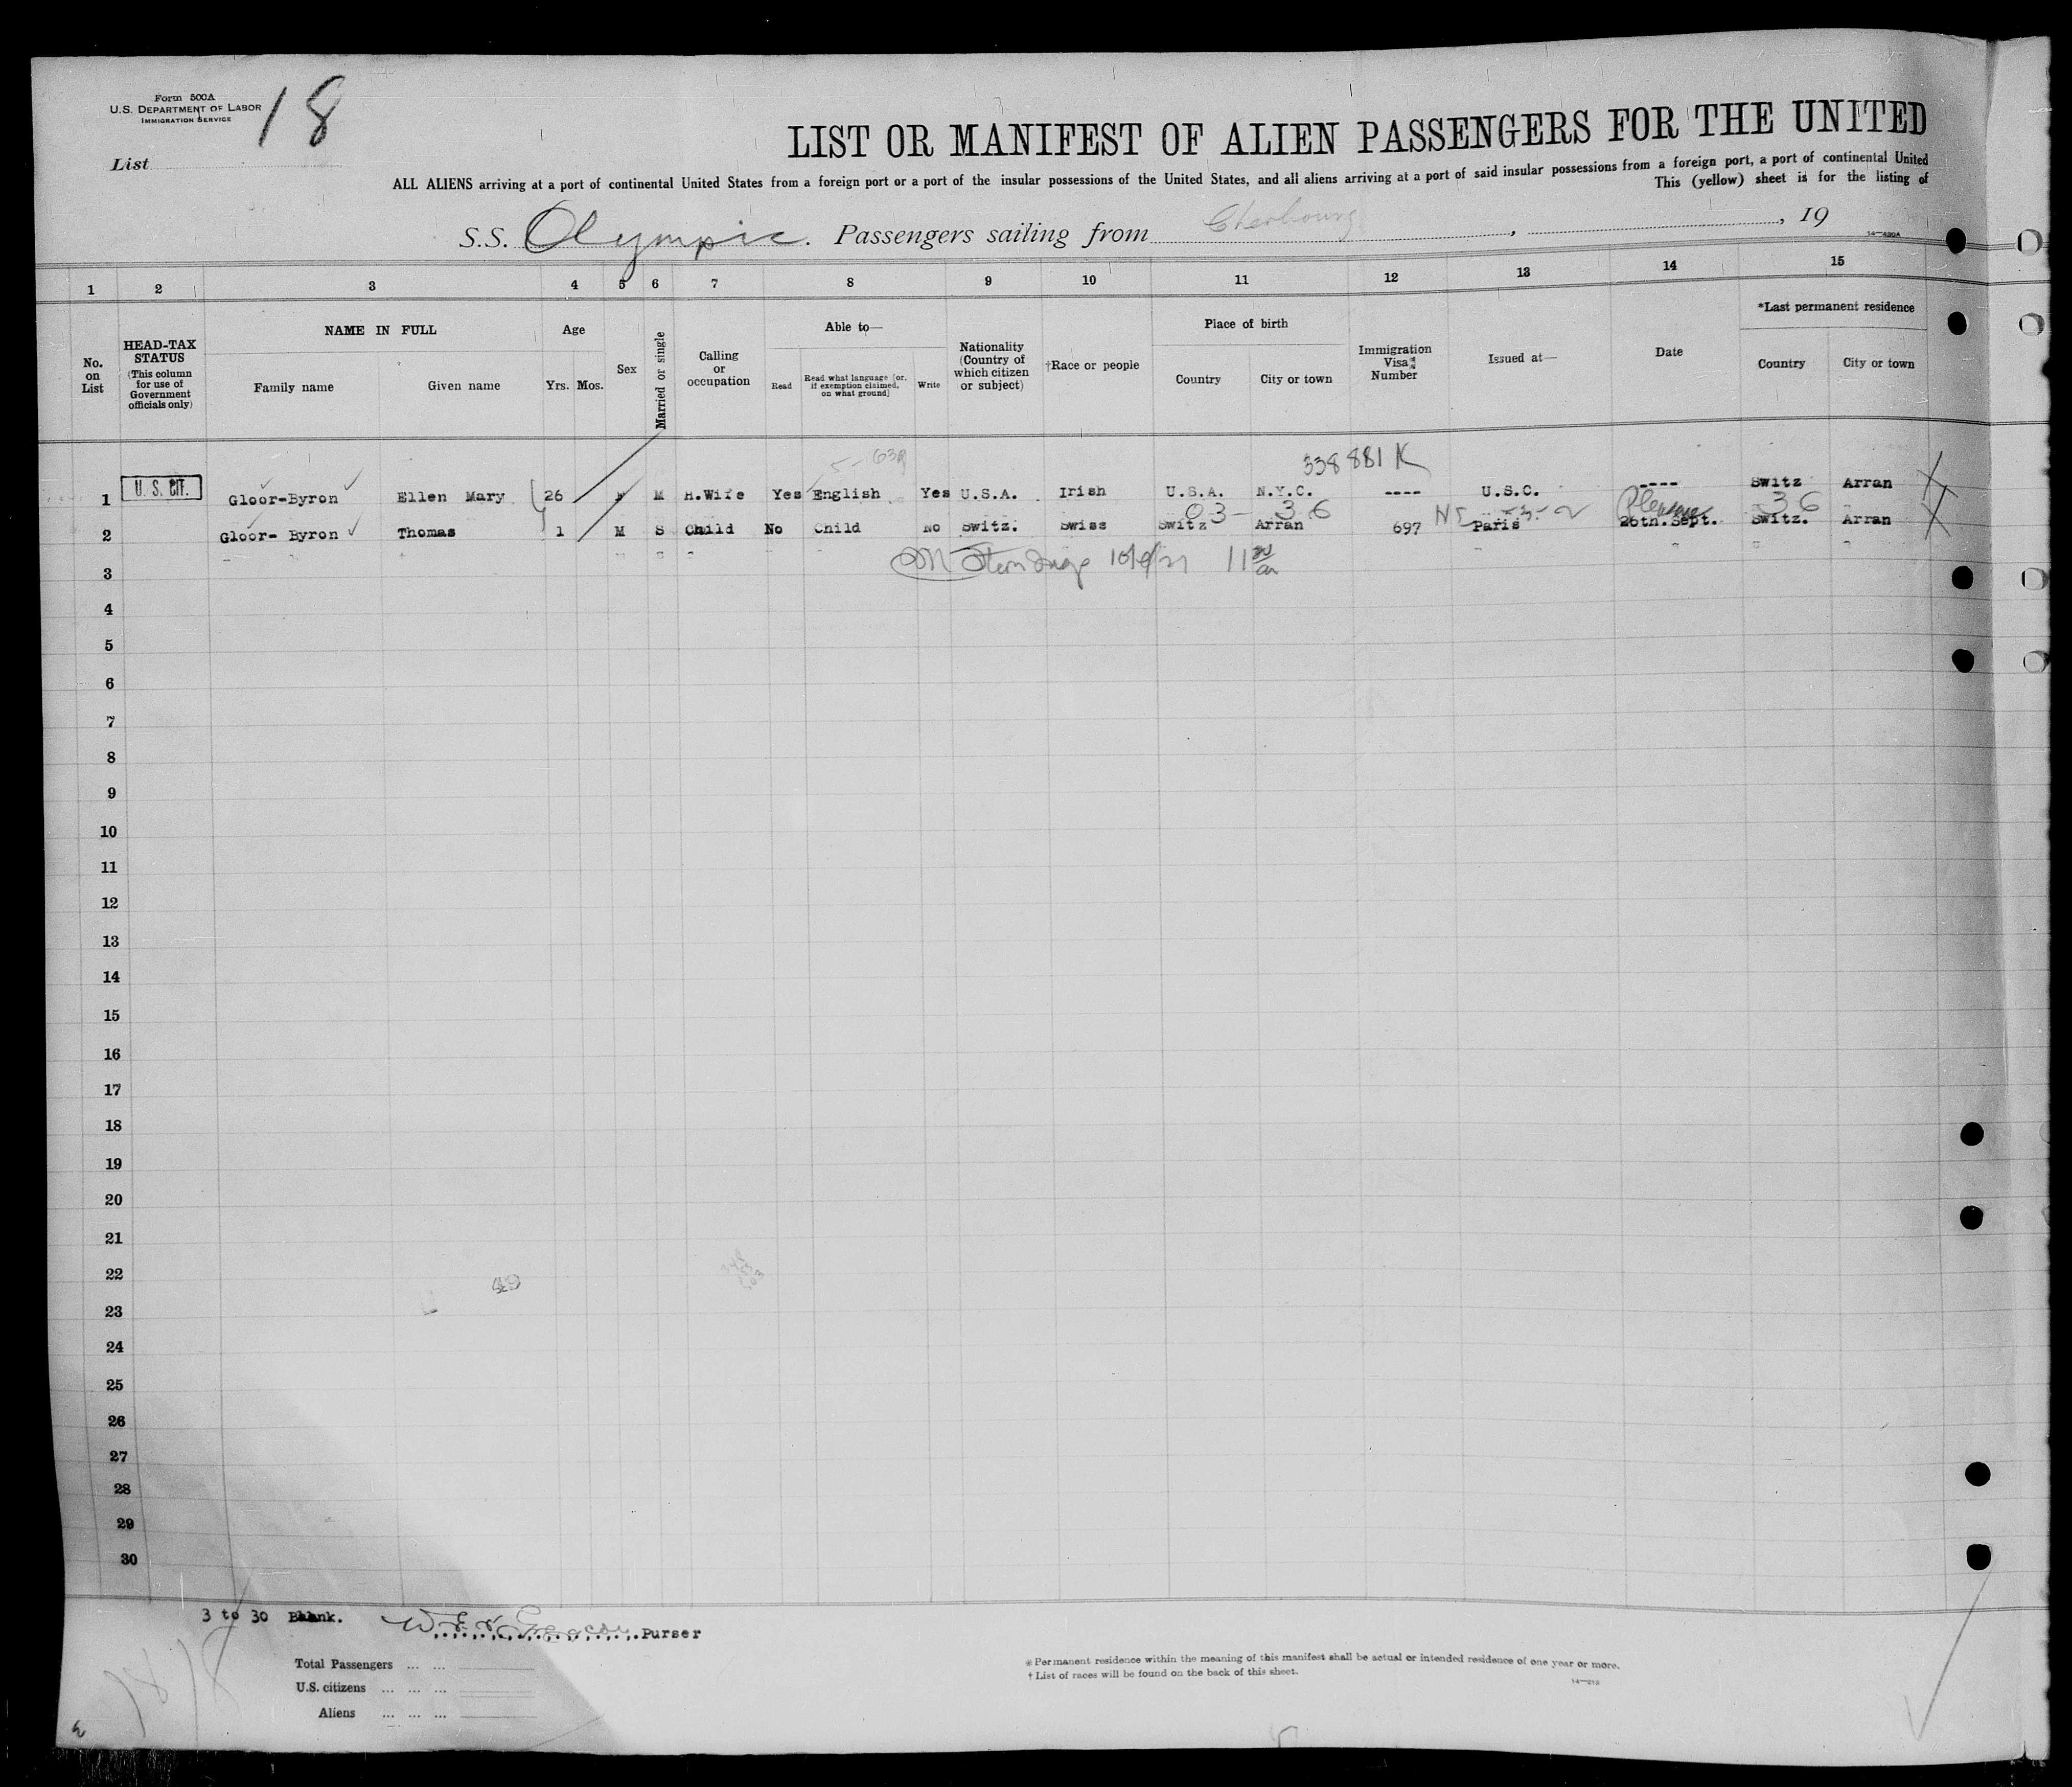 Form 500A
U.S. DEPARTMENT OF LABOR
IMMIGRATION SERVICE
18
List
LIST OR MANIFEST OF ALIEN PASSENGERS FOR THE UNITED
ALL ALIENS arriving at a port of continental United States from a foreign port or a port of the insular possessions of the United States, and all aliens arriving at a port of said insular possessions from a foreign port, a port of continental United
This (yellow) sheet is for the listing of
S.S. Olympic. Passengers sailing from Cherbourg, , 19
1 2 3 4 5 6 7 8 9 10 11 12 13 14 15
No. on List
HEAD-TAX STATUS (This column for use of Government officials only)
NAME IN FULL
Family name Given name
Age
Yrs. Mos.
Sex
Married or single
Calling or occupation
Able to—
Read Read what language [or, if exemption claimed, on what ground] Write
Nationality (Country of which citizen or subject)
†Race or people
Place of birth
Country City or town
Immigration Visa Number
Issued at—
Date
*Last permanent residence
Country City or town
338881 K
1 U.S. CIT. Gloor-Byron Ellen Mary 26 M H.Wife Yes English Yes U.S.A. Irish U.S.A. N.Y.C. ---- U.S.C. ---- Switz Arran
03- 36 36
2 Gloor- Byron Thomas 1 M S Child No Child No Switz. Swiss Switz Arran 697 Paris 26th.Sept. Switz. Arran
3
4
5
6
7
8
9
10
11
12
13
14
15
16
17
18
19
20
21
22
23
24
25
26
27
28
29
30
3 to 30 Blank. Purser
Total Passengers ... ...
U.S. citizens ... ... ...
Aliens ... ... ...
* Permanent residence within the meaning of this manifest shall be actual or intended residence of one year or more.
† List of races will be found on the back of this sheet.